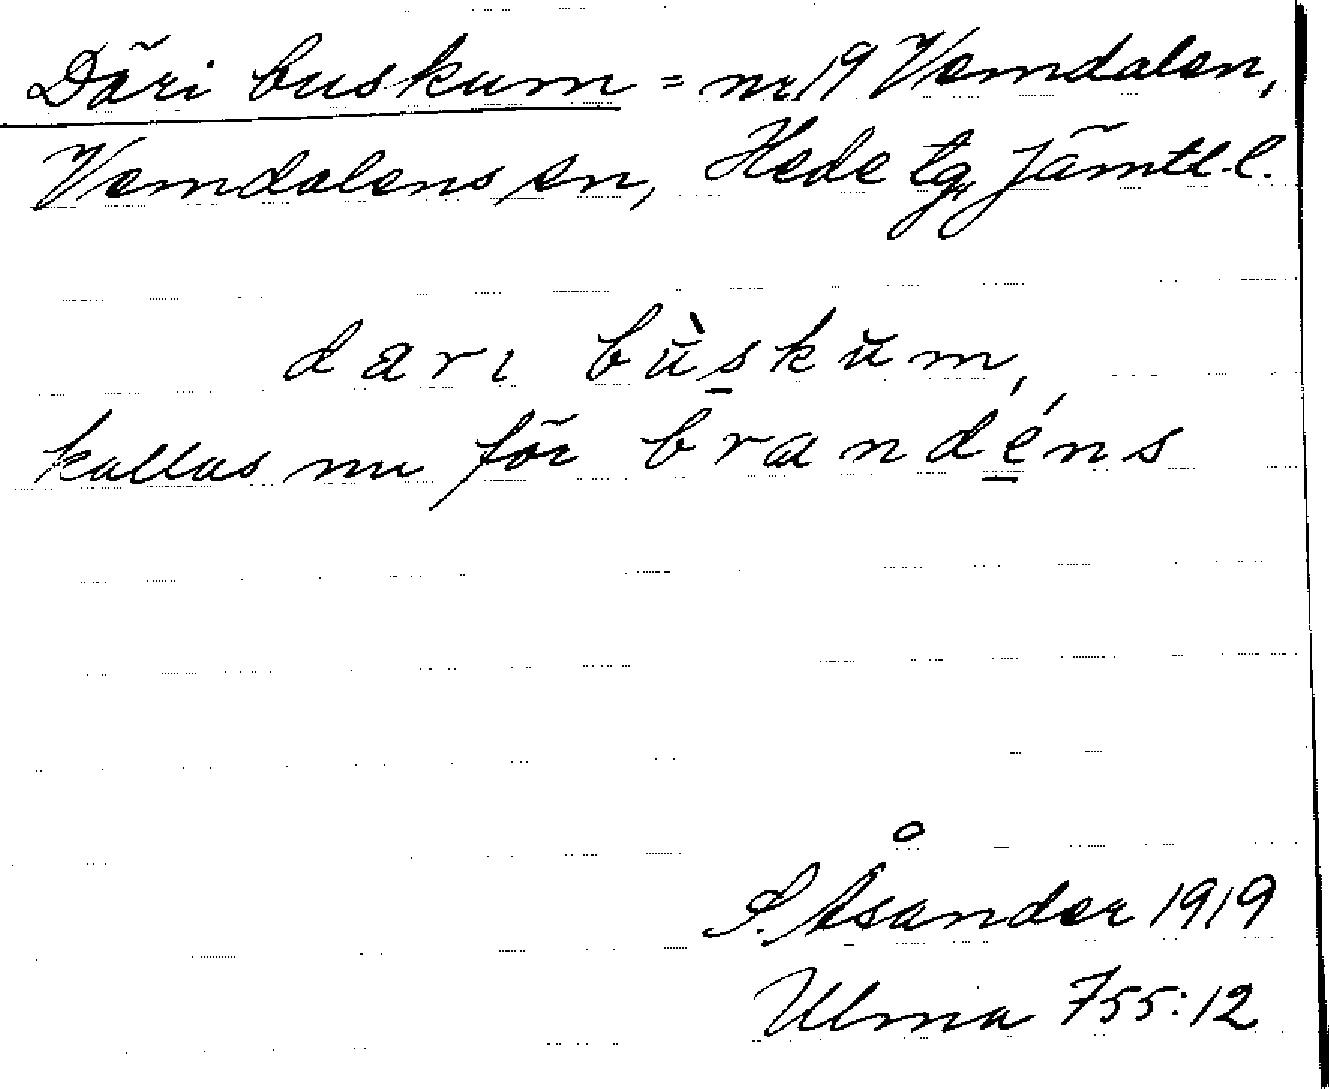 Däri buskum = nr 19 Vemdalen,
Vemdalens sn, Hede tg Jämtl. l.
dari bùskŭm,
kallas nu för brandéns
S. Åsander 1919
Ulma 755:12